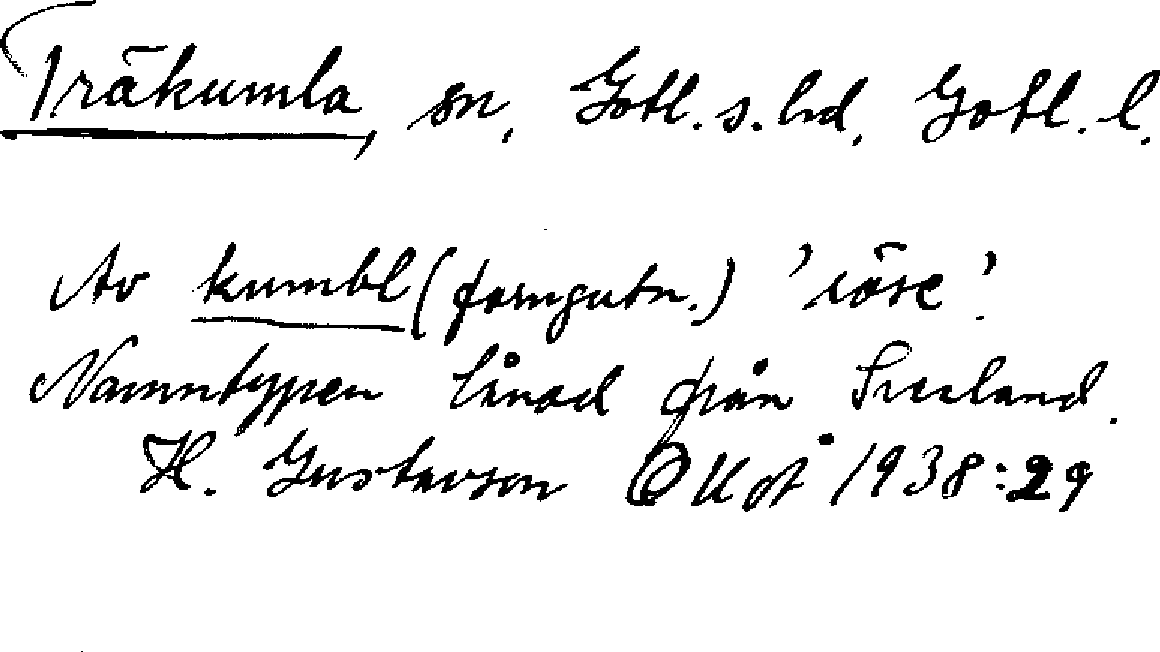 Träkumla, sn, Gotl. s. hd, Gotl. l.
Av kumbl (forngutn.) 'röse'.
Namntypen lånad från Svealand.
H. Gustavson OKOÅ 1938:29